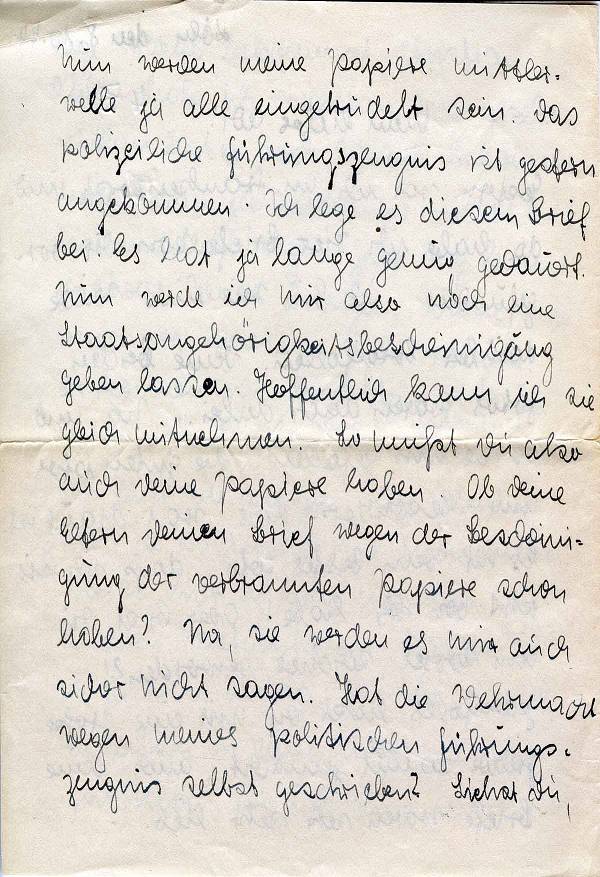 Nun werden meine Papiere mittler-
weile ja alle eingetrudelt sein. Das
polizeiliche Führungszeugnis ist gestern
angekommen. Ich lege es diesem Brief
bei. Es hat ja lange genug gedauert.
Nun werde ich mir also noch eine
Staatsangehörigkeitsbescheinigung
geben lassen. Hoffentlich kann ich sie
gleich mitnehmen. So mußt du also
auch deine Papiere haben. Ob deine
Eltern deinen Brief wegen der Bescheini-
gung der verbrannten Papiere schon
haben? Na, sie werden es mir auch
sicher nicht sagen. Hat die Wehrmacht
wegen meines politischen Führungs-
zeugnis selbst geschrieben? Siehst du,